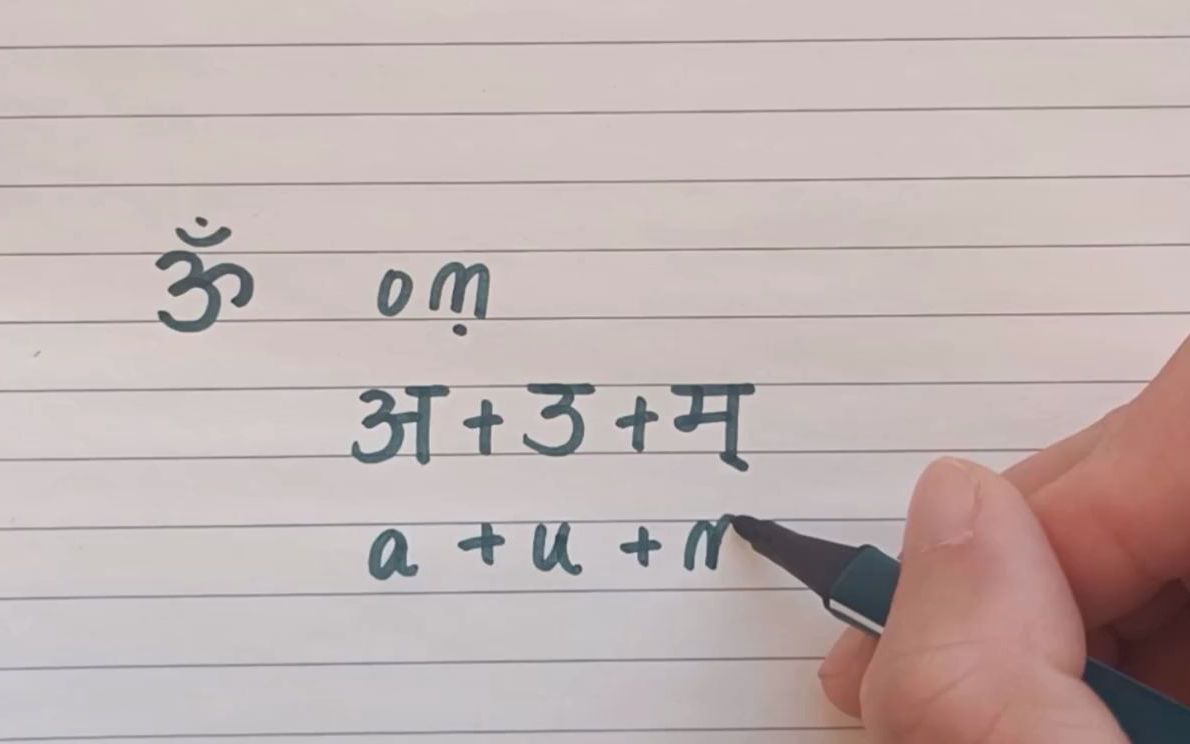 ॐ oṃ
अ + उ + म्
a + u + m